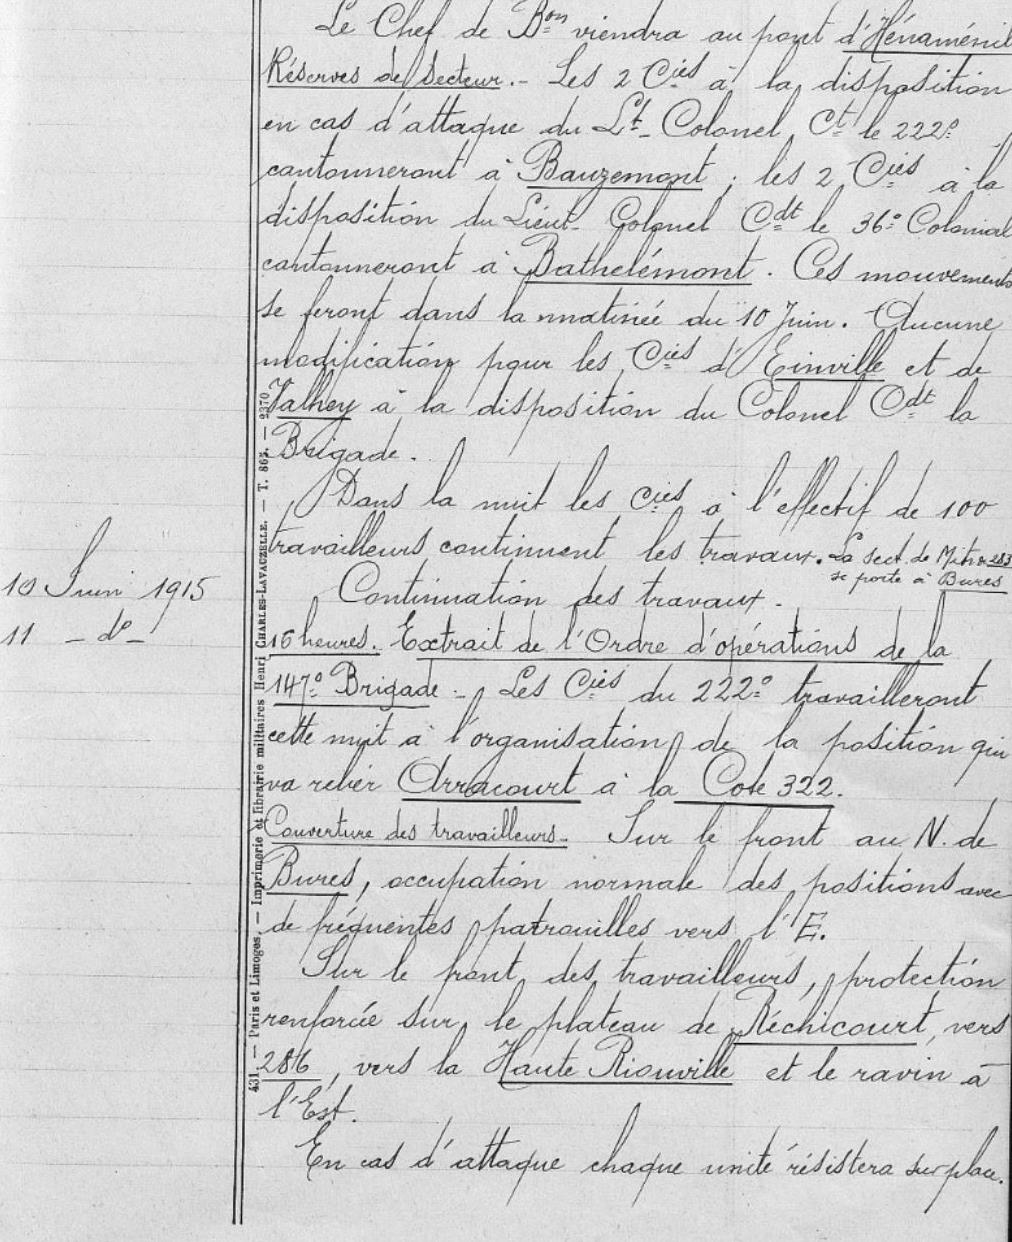 Le Chef de Bon viendra au pont d'Hénaménil
Réserves de secteur. - Les 2 Cies à la disposition
en cas d'attaque du Lt-Colonel Ct le 222e
cantonneront à Bauzemont ; les 2 Cies à la
disposition du Lieut-Colonel Cdt le 36e Colonial
cantonneront à Bathelémont. Ces mouvements
se feront dans la matinée du 10 Juin. Aucune
modification pour les Cies d'Einville et de
Valhey à la disposition du Colonel Cdt la
Brigade.
Dans la nuit les Cies à l'effectif de 100
travailleurs continuent les travaux. La sect. de Mitr 283
se porte à Bures
10 Juin 1915
Continuation des travaux.
11 - do -
16 heures. Extrait de l'Ordre d'opérations de la
147e Brigade - Les Cies du 222e travailleront
cette nuit à l'organisation de la position qui
va relier Arracourt à la Cote 322.
Couverture des travailleurs - Sur le front au N. de
Bures, occupation normale des positions avec
de fréquentes patrouilles vers l'E.
Sur le front des travailleurs, protection
renforcée sur le plateau de Réchicourt, vers
286, vers la Haute Riouville et le ravin à
l'Est.
En cas d'attaque chaque unité résistera sur place.
431. — Paris et Limoges. — Imprimerie et librairie militaires Henri CHARLES-LAVAUZELLE. — T. 865. — 2370